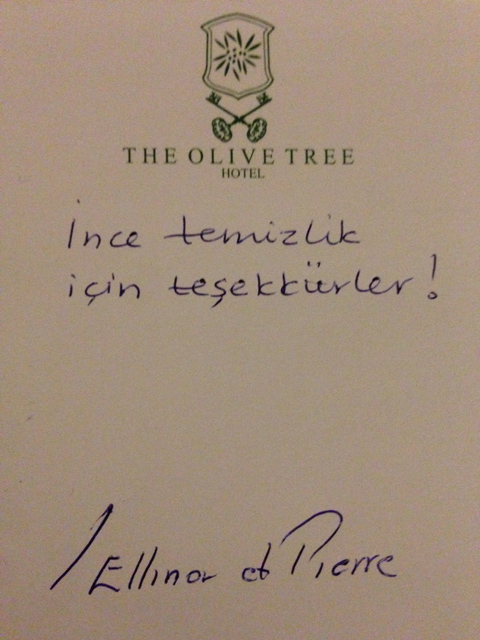 THE OLIVE TREE
HOTEL
İnce temizlik
için teşekkürler!
/Ellinor et Pierre